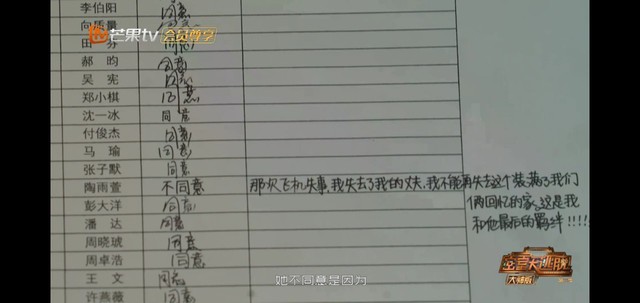 李伯阳 同意
向质量 同意
芒果tv 会员尊享
田芬 同意
郝昀 同意
吴宪 同意
郑小棋 同意
沈一冰 同意
付俊杰 同意
马瑜 同意
张子默 同意
陶雨萱 不同意 那次飞机失事,我失去了我的丈夫,我不能再失去这个装满了我们
俩回忆的家,这是我
和他最后的羁绊!!!!
彭大洋 同意
潘达 同意
周晓琥 同意
周卓浩 同意
王文 同意
许燕薇 同意
密室大逃脱
大师版
她不同意是因为